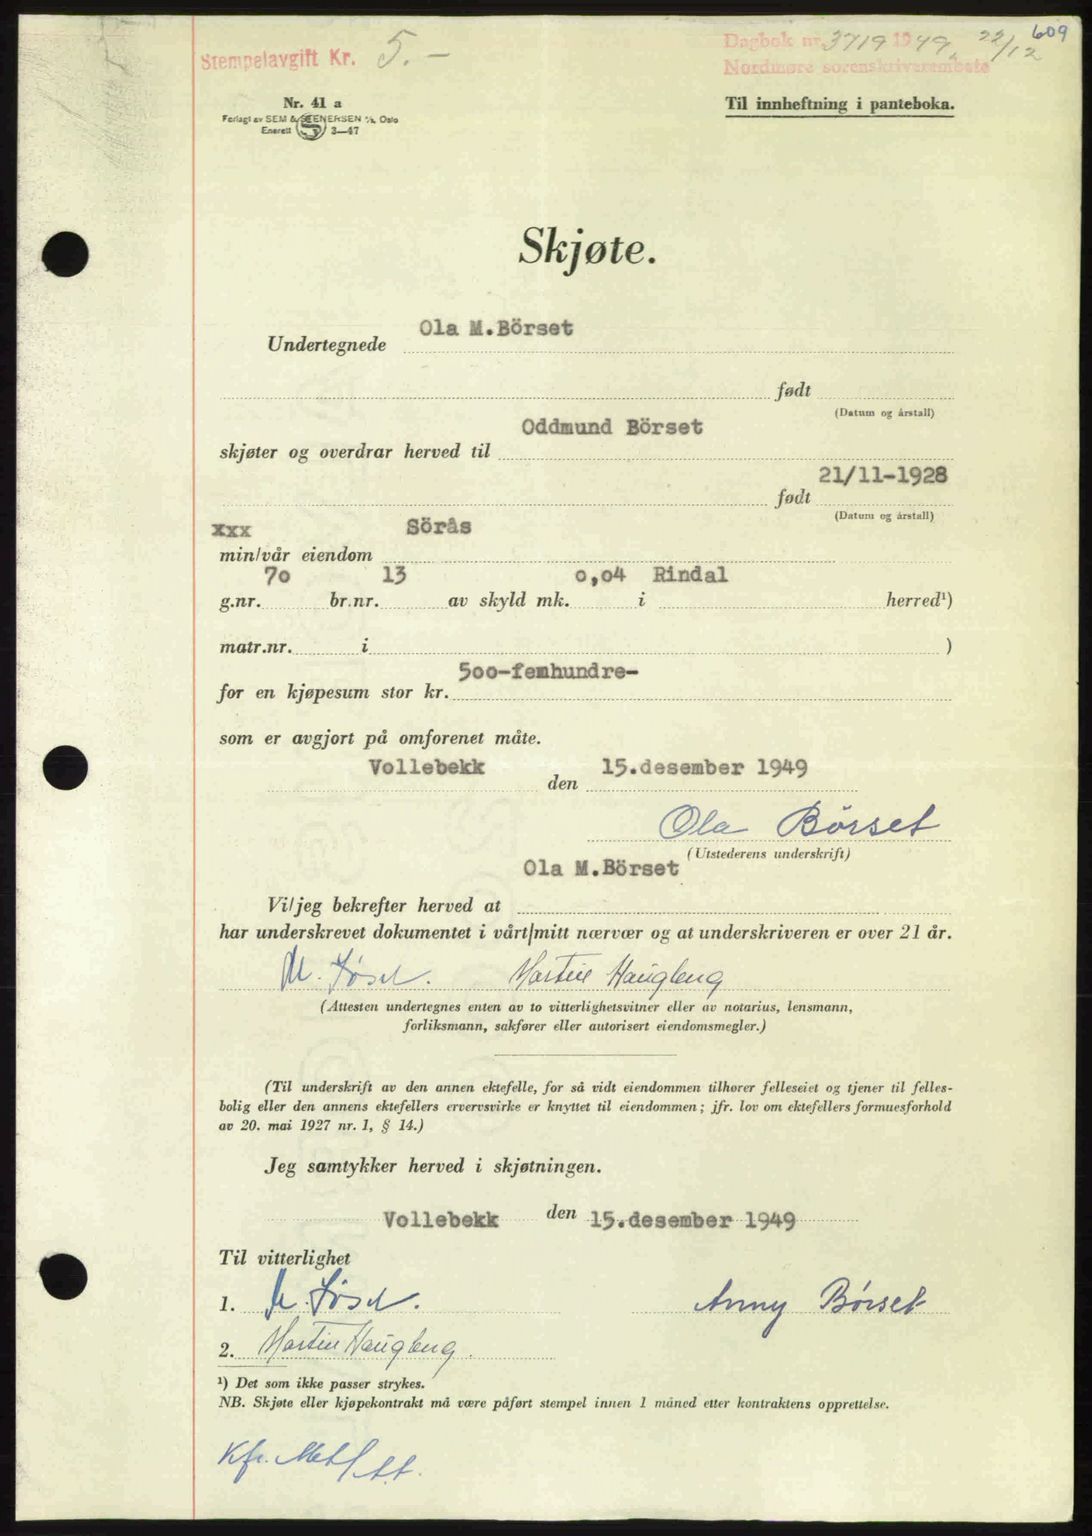 609
Stempelavgift Kr. 5.-
Dagbok nr. 3719 1949, 22/12
Nordmøre sorenskriverembete
Nr. 41 a
Forlagt av SEM & STENERSEN A/S, Oslo
Enerett S 3—47
Til innheftning i panteboka.
Skjøte.
Ola M.Börset
Undertegnede
født
(Datum og årstall)
Oddmund Börset
skjøter og overdrar herved til
21/11-1928
født
(Datum og årstall)
xxx Sörås
min/vår eiendom
70 13 0,04 Rindal
g.nr. br.nr. av skyld mk. i herred¹)
matr.nr. i )
500-femhundre-
for en kjøpesum stor kr.
som er avgjort på omforenet måte.
Vollebekk 15.desember 1949
den
Ola Börset
(Utstederens underskrift)
Ola M.Börset
Vi/jeg bekrefter herved at
har underskrevet dokumentet i vårt/mitt nærvær og at underskriveren er over 21 år.
M. Martin Haugberg
(Attesten undertegnes enten av to vitterlighetsvitner eller av notarius, lensmann,
forliksmann, sakfører eller autorisert eiendomsmegler.)
(Til underskrift av den annen ektefelle, for så vidt eiendommen tilhører felleseiet og tjener til felles-
bolig eller den annens ektefellers ervervsvirke er knyttet til eiendommen; jfr. lov om ektefellers formuesforhold
av 20. mai 1927 nr. 1, § 14.)
Jeg samtykker herved i skjøtningen.
Vollebekk den 15.desember 1949
Til vitterlighet
1. M. Anny Börset
2. Martin Haugberg.
¹) Det som ikke passer strykes.
NB. Skjøte eller kjøpekontrakt må være påført stempel innen 1 måned etter kontraktens opprettelse.
Kfr.